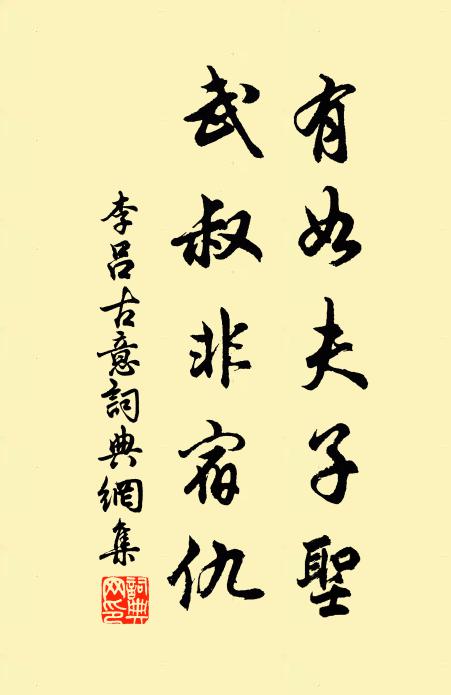 有如夫子聖
武叔非宿仇
李呂古意詞典網集
詞典網印